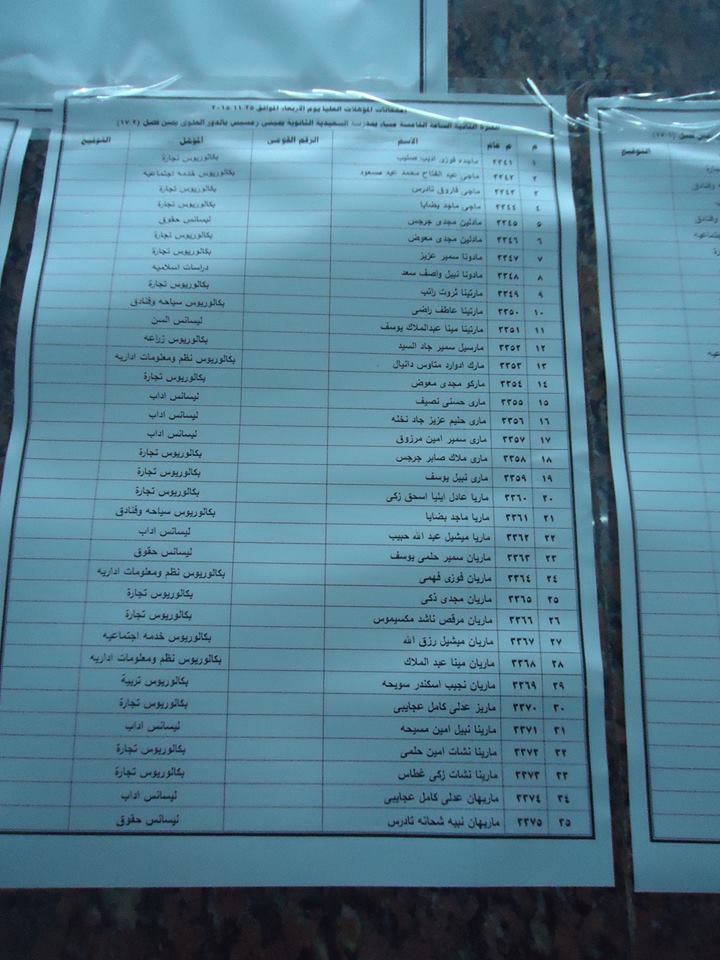 امتحانات المؤهلات العليا يوم الأربعاء الموافق ٢٥-١١-٢٠١٥
الفترة الثانية الساعة الخامسة مساء بمدرسة السعيدية الثانوية بمبنى رمسيس بالدور العلوى يمين فصل (١٧-٢)
م م عام الاسم الرقم القومى المؤهل التوقيع
١ ٣٣٤١ ماجده فوزى اديب صليب بكالوريوس تجارة
٢ ٣٣٤٢ ماجى عبد الفتاح محمد عبد مسعود بكالوريوس خدمه اجتماعيه
٣ ٣٣٤٣ ماجى فاروق تادرس بكالوريوس تجارة
٤ ٣٣٤٤ ماجى ماجد بضابا بكالوريوس تجارة
٥ ٣٣٤٥ مادلين مجدى جرجس ليسانس حقوق
٦ ٣٣٤٦ مادلين مجدى معوض بكالوريوس تجارة
٧ ٣٣٤٧ مادونا سمير عزيز بكالوريوس تجارة
٨ ٣٣٤٨ مادونا نبيل واصف سعد دراسات اسلاميه
٩ ٣٣٤٩ مارتينا ثروت راتب بكالوريوس تجارة
١٠ ٣٣٥٠ مارتينا عاطف راضى بكالوريوس سياحه وفنادق
١١ ٣٣٥١ مارتينا مينا عبدالملاك يوسف ليسانس السن
١٢ ٣٣٥٢ مارسيل سمير جاد السيد بكالوريوس زراعه
١٣ ٣٣٥٣ مارك ادوارد متاوس دانيال بكالوريوس نظم ومعلومات اداريه
١٤ ٣٣٥٤ ماركو مجدى معوض بكالوريوس تجارة
١٥ ٣٣٥٥ مارى حسنى نصيف ليسانس اداب
١٦ ٣٣٥٦ مارى حليم عزيز جاد نخله ليسانس اداب
١٧ ٣٣٥٧ مارى سمير امين مرزوق ليسانس اداب
١٨ ٣٣٥٨ مارى ملاك صابر جرجس بكالوريوس تجارة
١٩ ٣٣٥٩ مارى نبيل يوسف بكالوريوس تجارة
٢٠ ٣٣٦٠ ماريا عادل ايليا اسحق زكى بكالوريوس تجارة
٢١ ٣٣٦١ ماريا ماجد بضابا بكالوريوس سياحه وفنادق
٢٢ ٣٣٦٢ ماريا ميشيل عبد الله حبيب ليسانس اداب
٢٣ ٣٣٦٣ ماريان سمير حلمى يوسف ليسانس حقوق
٢٤ ٣٣٦٤ ماريان فوزى فهمى بكالوريوس نظم ومعلومات اداريه
٢٥ ٣٣٦٥ ماريان مجدى ذكى بكالوريوس تجارة
٢٦ ٣٣٦٦ ماريان مرقص ناشد مكسيموس بكالوريوس تجارة
٢٧ ٣٣٦٧ ماريان ميشيل رزق الله بكالوريوس خدمه اجتماعيه
٢٨ ٣٣٦٨ ماريان مينا عبد الملاك بكالوريوس نظم ومعلومات اداريه
٢٩ ٣٣٦٩ ماريان نجيب اسكندر سويحه بكالوريوس تربية
٣٠ ٣٣٧٠ ماريز عدلى كامل عجايبى بكالوريوس تجارة
٣١ ٣٣٧١ مارينا نبيل امين مسيحه ليسانس اداب
٣٢ ٣٣٧٢ مارينا نشات امين حلمى بكالوريوس تجارة
٣٣ ٣٣٧٣ مارينا نشات زكى غطاس بكالوريوس تجارة
٣٤ ٣٣٧٤ ماريهان عدلى كامل عجايبى ليسانس اداب
٣٥ ٣٣٧٥ ماريهان نبيه شحاته تادرس ليسانس حقوق
التوقيع